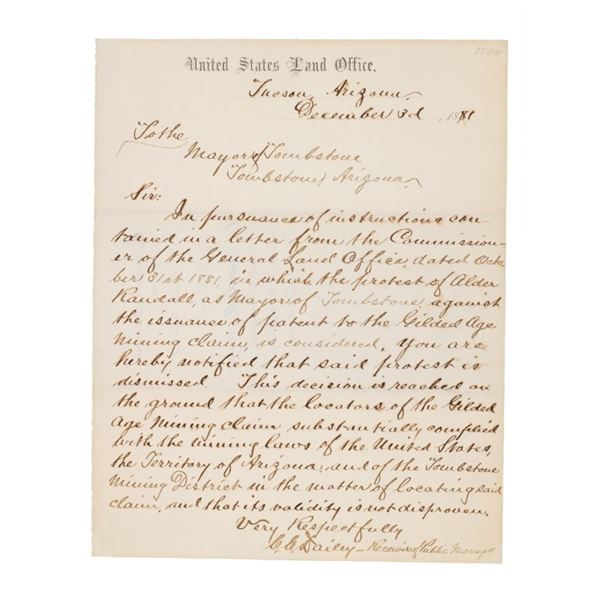 United States Land Office.
Tucson, Arizona,
December 3d, 1881.
To the
Mayor of Tombstone
Tombstone, Arizona,
Sir:
In pursuance of instructions con-
tained in a letter from the Commission-
er of the General Land Office, dated Octo
ber 31st 1881, in which the protest of Alder
Randall, as Mayor of Tombstone, against
the issuance of patent to the Gilded Age
Mining claim, is considered. You are
hereby notified that said protest is
dismissed. This decision is reached on
the ground that the locators of the Gilded
Age Mining claim, substantially complied
with the mining laws of the United States,
the Territory of Arizona, and of the Tombstone
Mining District in the matter of locating said
claim, and that its validity is not disproven.
Very Respectfully
C. E. Dailey - Receiver of Public Moneys